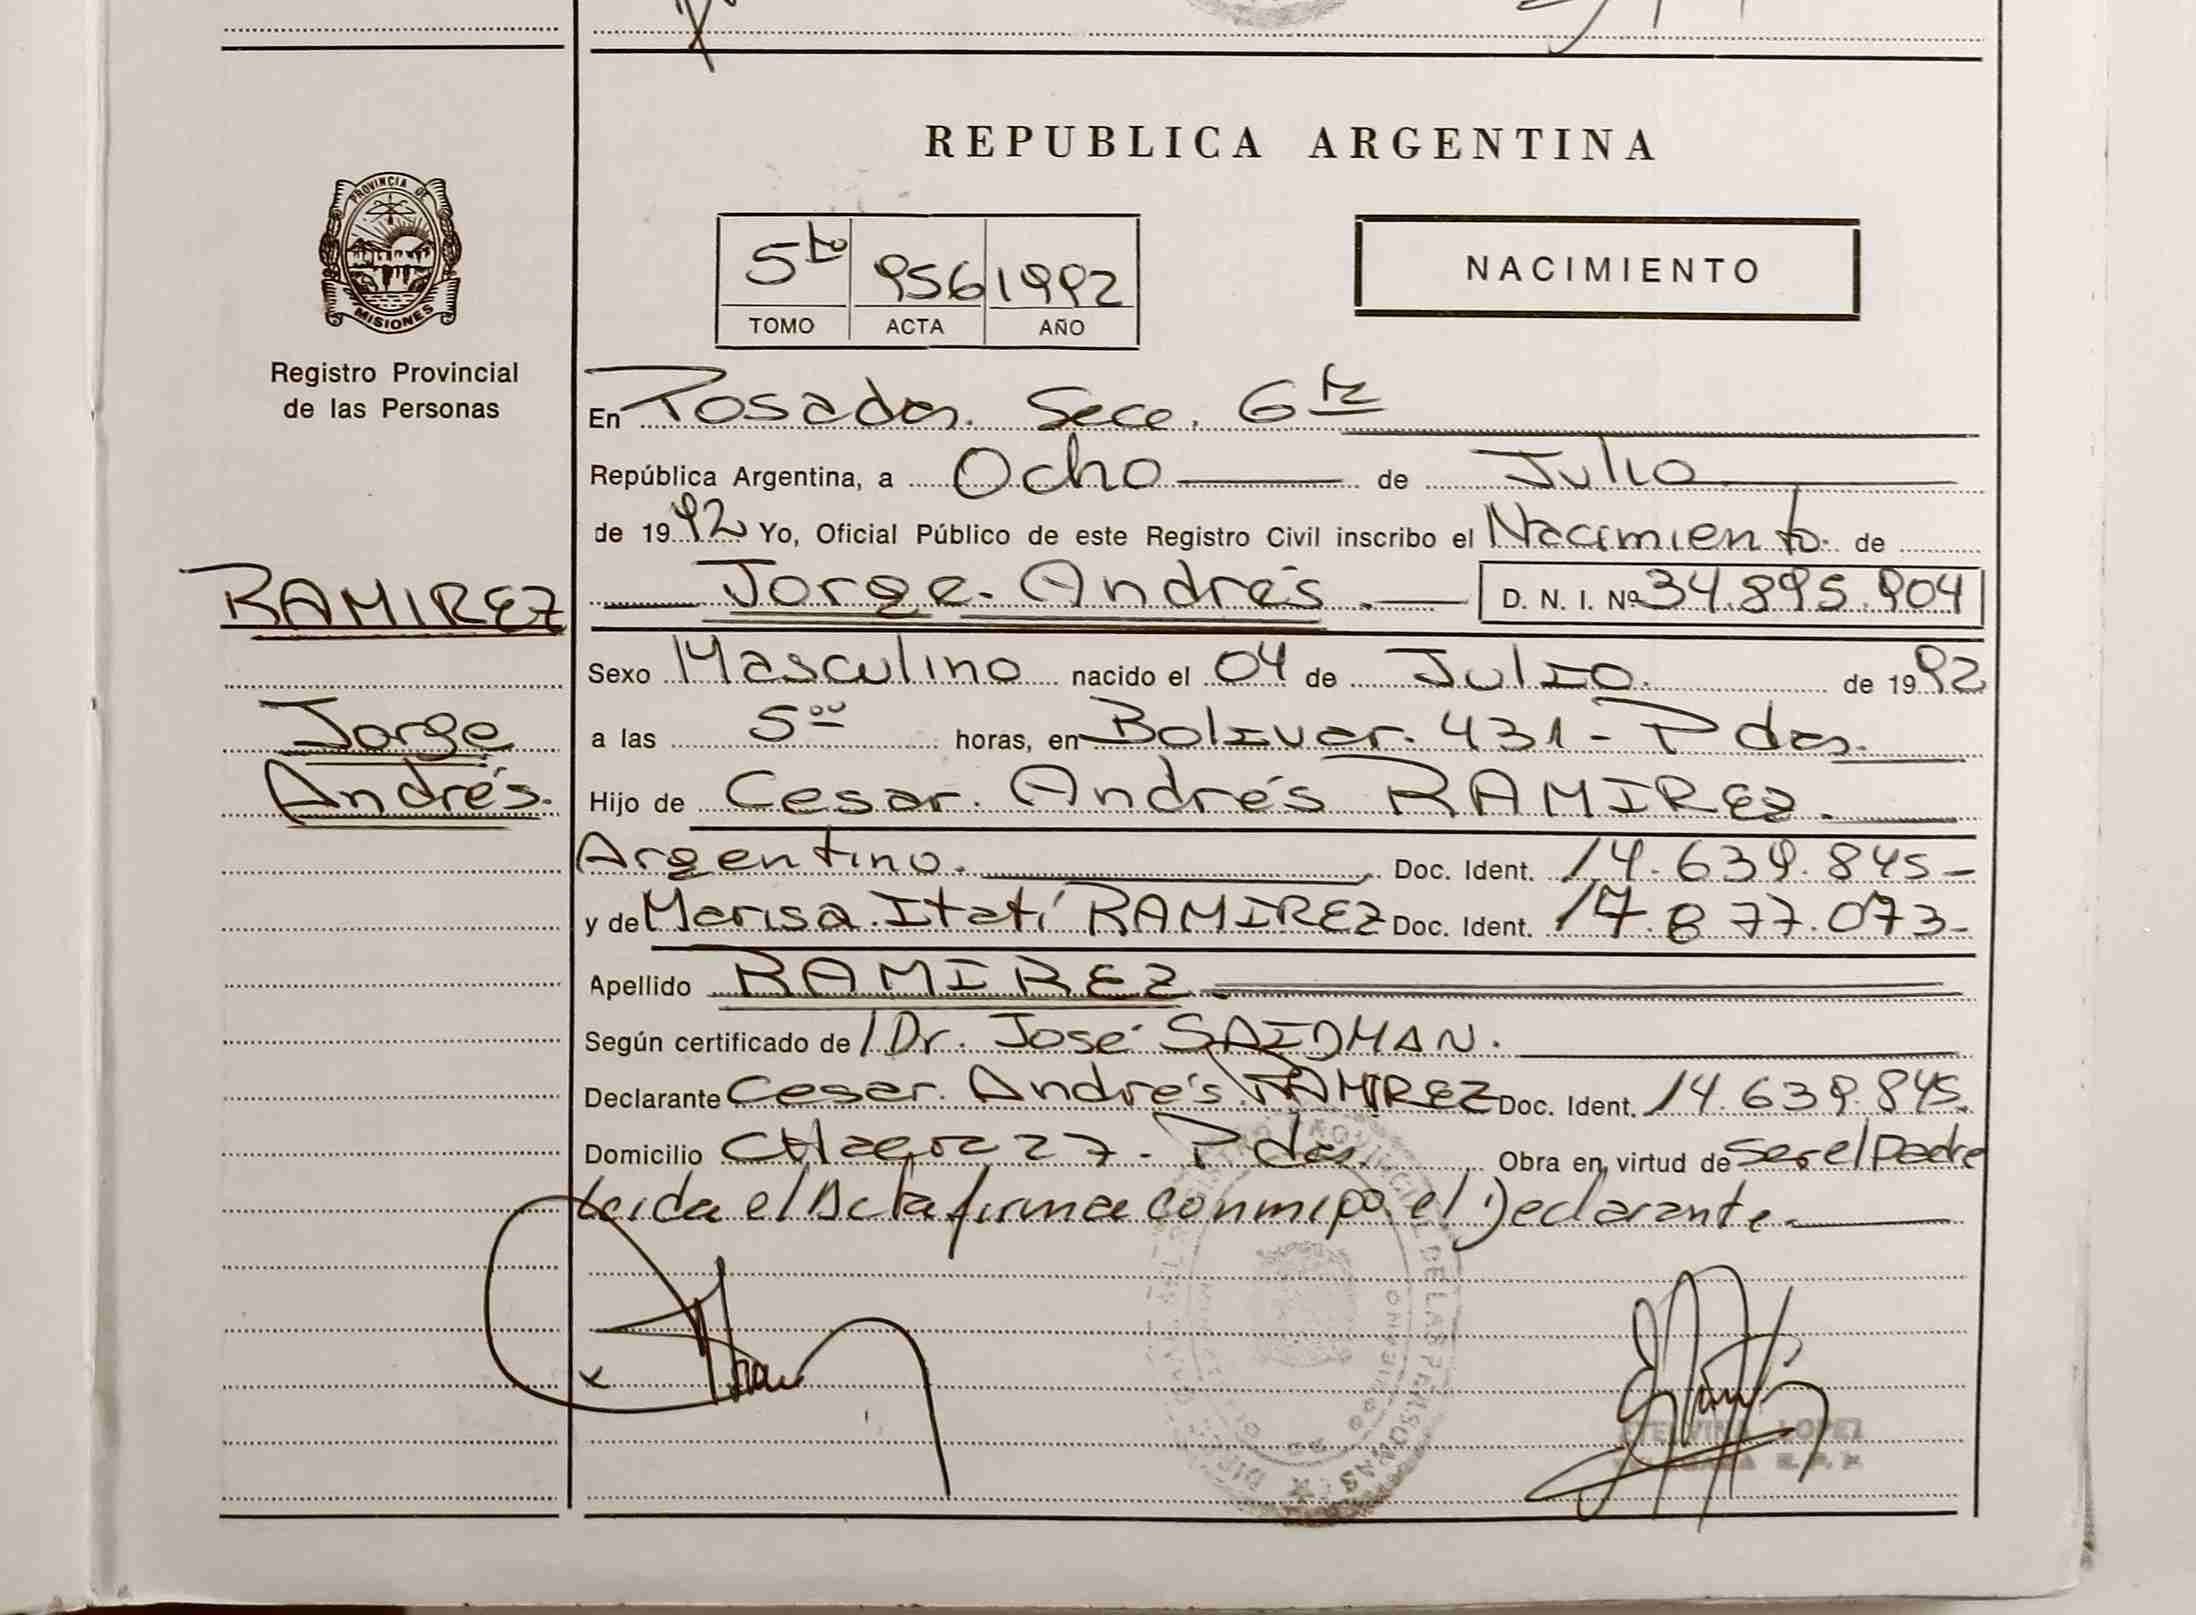 REPUBLICA ARGENTINA
PROVINCIA DE
MISIONES
Registro Provincial
de las Personas
5to 956 1992
TOMO ACTA AÑO
NACIMIENTO
En Posadas. Secc. 6ta
República Argentina, a Ocho de Julio
de 1992 Yo, Oficial Público de este Registro Civil inscribo el Nacimiento. de
RAMIREZ
Jorge
Andrés.
Jorge. Andrés. D. N. I. Nº 34.895.904
Sexo Masculino nacido el 04 de Julio. de 1992
a las 5 00 horas, en Bolivar. 431 - Pdas.
Hijo de Cesar. Andrés RAMIREZ.
Argentino. Doc. Ident. 14.639.845-
y de Marisa. Itatí RAMIREZ Doc. Ident. 17.877.073-
Apellido RAMIREZ.
Según certificado de Dr. José SAIDMAN.
Declarante Cesar. Andrés. RAMIREZ Doc. Ident. 14.639.845.
Domicilio 27 - Pdas. Obra en virtud de ser el Padre
Leida el Acta firma conmigo el Declarante.
DE LAS PERSONAS
LOPEZ